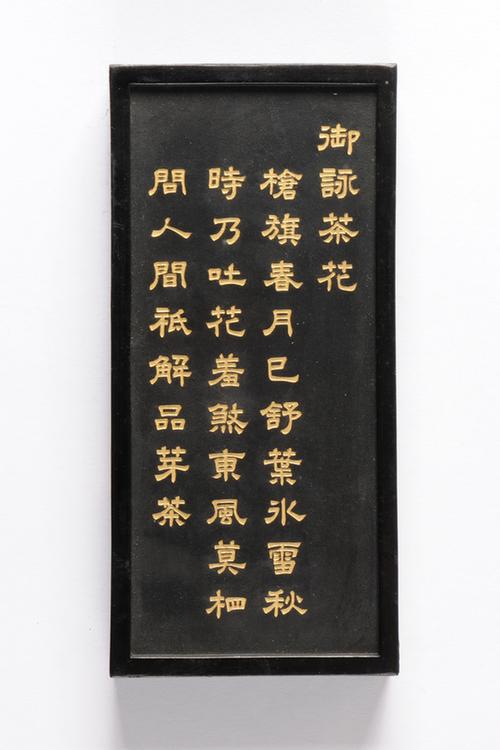 御詠茶花
槍旗春月已舒葉氷雪秋
時乃吐花羞煞東風莫相
問人間祇解品芽茶